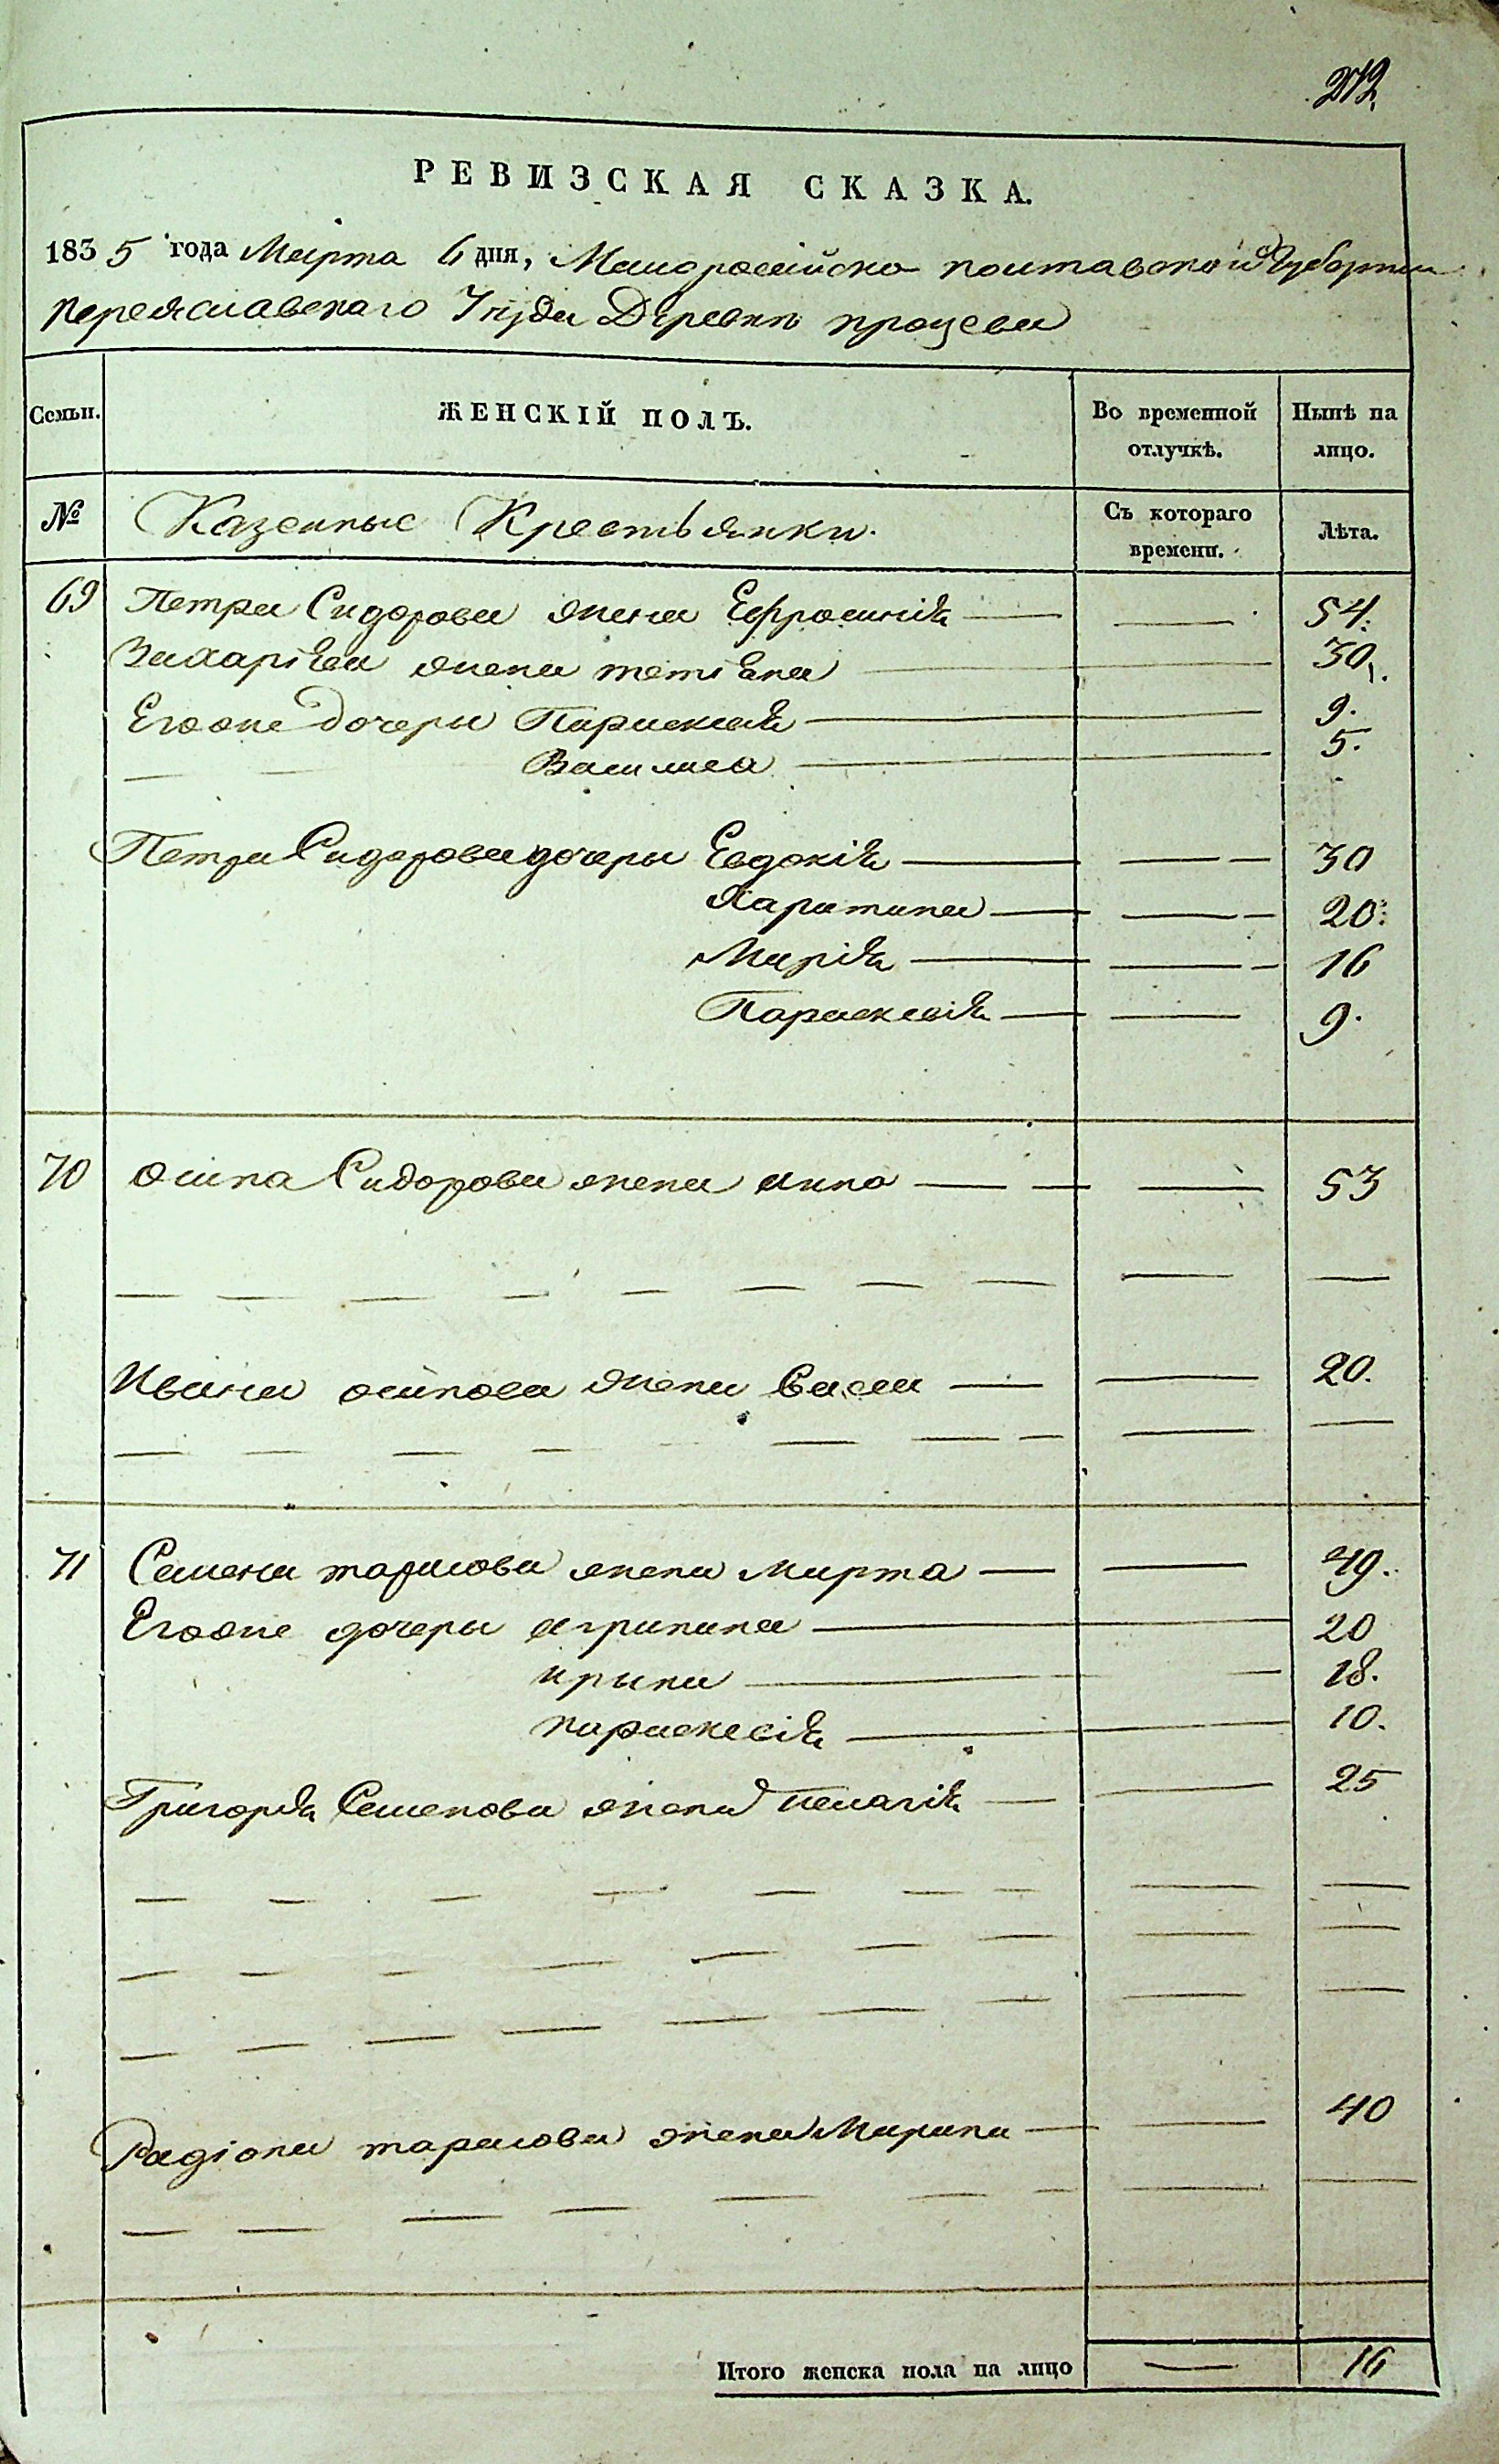 212.
РЕВИЗСКАЯ СКАЗКА.
1835 года Марта 6 дня, Малоросейско полтавской Губернии
переяславскаго Уезда Деревни процева
Семьи. ЖЕНСКІЙ ПОЛЪ. Во временной отлучкѣ. Нынѣ на лицо.
№ Казенные Крестьянки. Съ котораго времени. Лѣта.
69 Петра Сидорова жена Ефросинія 54.
Захарія жена 30.
Егоже дочеры Параскевія 9.
Василиса 5.
Петра Сидорова дочеры Евдокія 30
Харитина 20.
Марія 16
Параскевія 9.
70 осипа Сидорова жена анна 53
Ивана осипова жена 20.
71 Семена тарасова жена Марта 49.
Егоже дочеры агрипина 20
ирина 18.
параскевія 10.
Григорія Семенова жена пелагія 25
Радіона тарасова жена Марина 40
Итого женска пола на лицо — 16